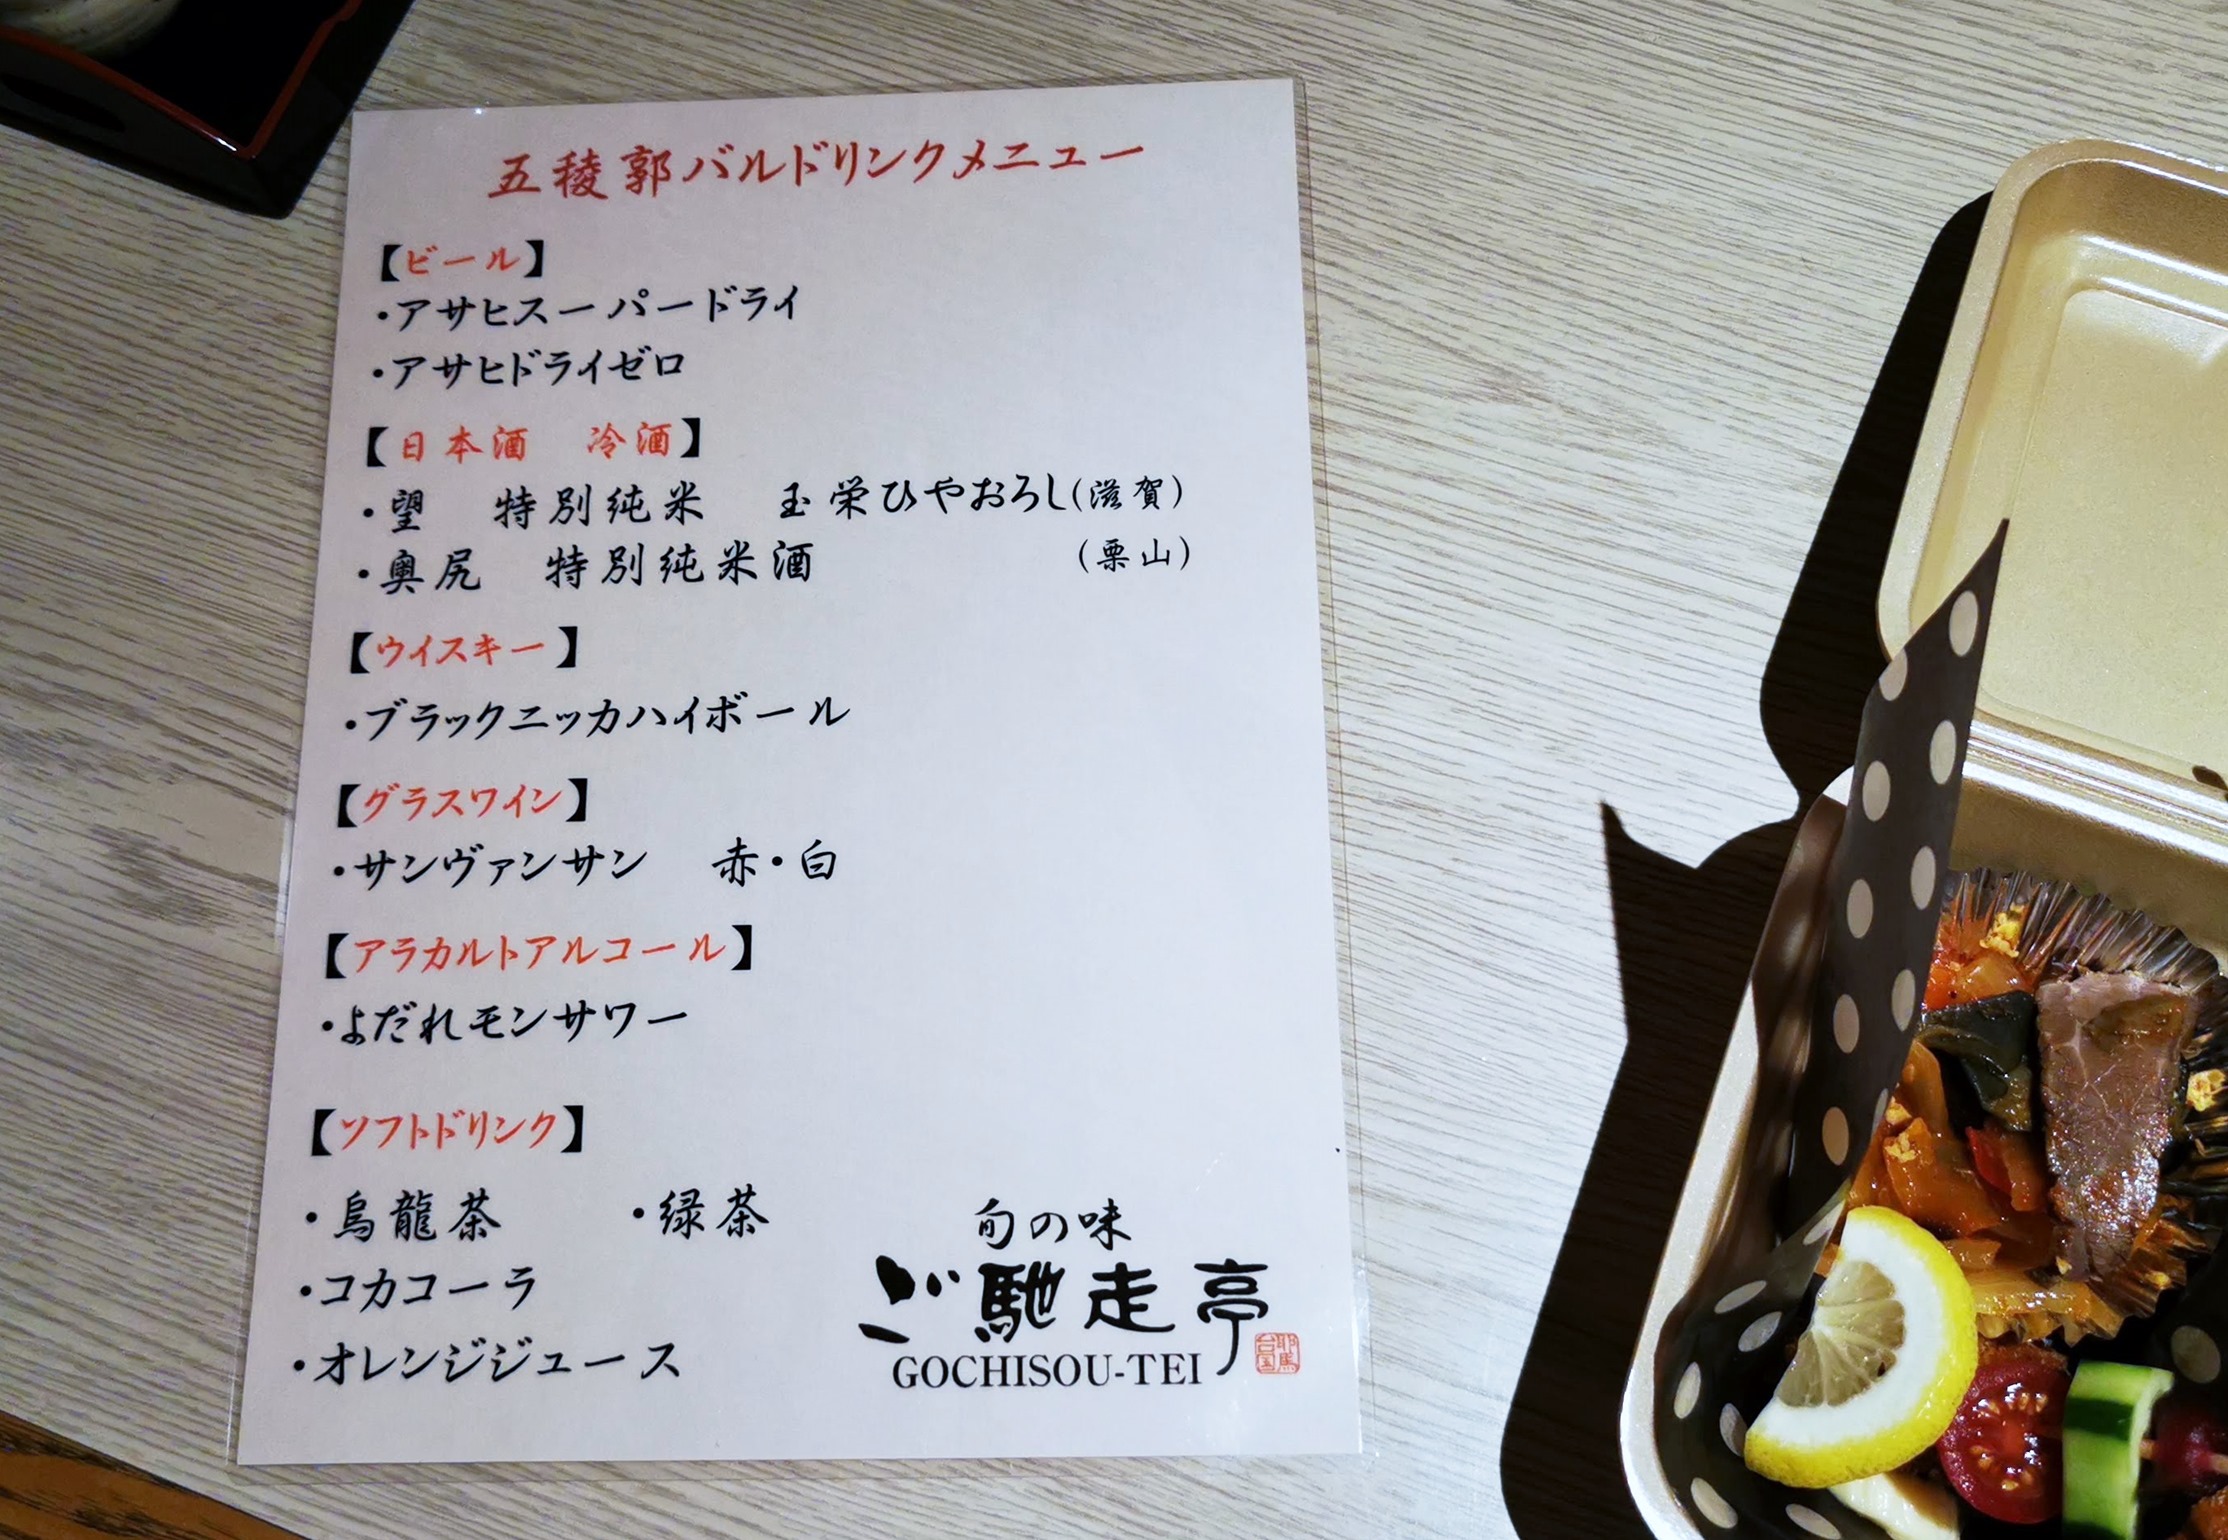 五稜郭バルドリンクメニュー
【ビール】
・アサヒスーパードライ
・アサヒドライゼロ
【日本酒　冷酒】
・望　特別純米　玉栄ひやおろし(滋賀)
・奥尻　特別純米酒　(栗山)
【ウイスキー】
・ブラックニッカハイボール
【グラスワイン】
・サンヴァンサン　赤・白
【アラカルトアルコール】
・よだれモンサワー
【ソフトドリンク】
・烏龍茶　・緑茶
・コカコーラ
・オレンジジュース
旬の味
ご馳走亭
GOCHISOU-TEI